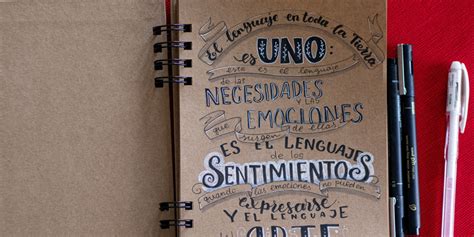 El lenguaje en toda la Tierra
es UNO:
este es el lenguaje
de las
NECESIDADES
y las
EMOCIONES
que surgen de ellas
ES EL LENGUAJE
de los
SENTIMIENTOS
cuando las emociones no pueden
expresarse
Y EL LENGUAJE
ARTE